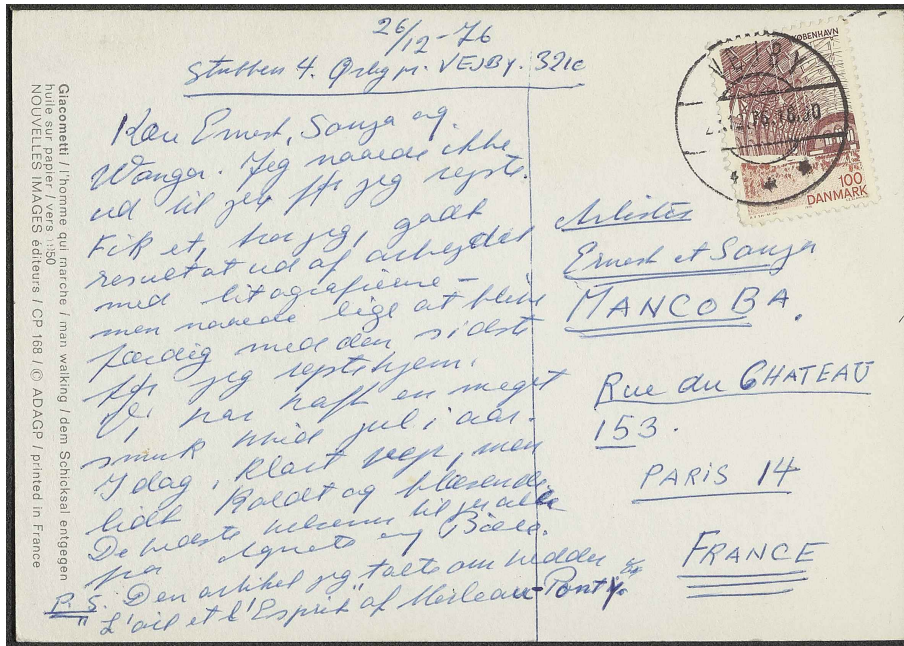 26/12-76
Stubben 4. Ørby pr. VEJBY. 321c
Kære Ernest, Sonja og
Wonga. Jeg naaede ikke
ud til jer før jeg rejste.
Fik et, tror jeg, godt
resultat ud af arbejdet
med litografierne –
men naaede lige at blive
færdig med den sidste
før jeg rejste hjem.
Vi har haft en meget
smuk hvid jul i aar.
I dag, klart vejr, men
lidt koldt og blæsende
De bedste hilsener til jer alle
fra Agnete og
P.S. Den artikel jeg talte om hedder
"L'œil et l'Esprit" af Merleau-Ponty.
Artistes
Ernest et Sonja
MANCOBA.
Rue du CHATEAU
153.
PARIS 14
FRANCE
KØBENHAVN
100
DANMARK
VEJBY
Giacometti / l'homme qui marche / man walking / dem Schicksal entgegen
huile sur papier / vers 1950
NOUVELLES IMAGES éditeurs / CP 168 / © ADAGP / printed in France